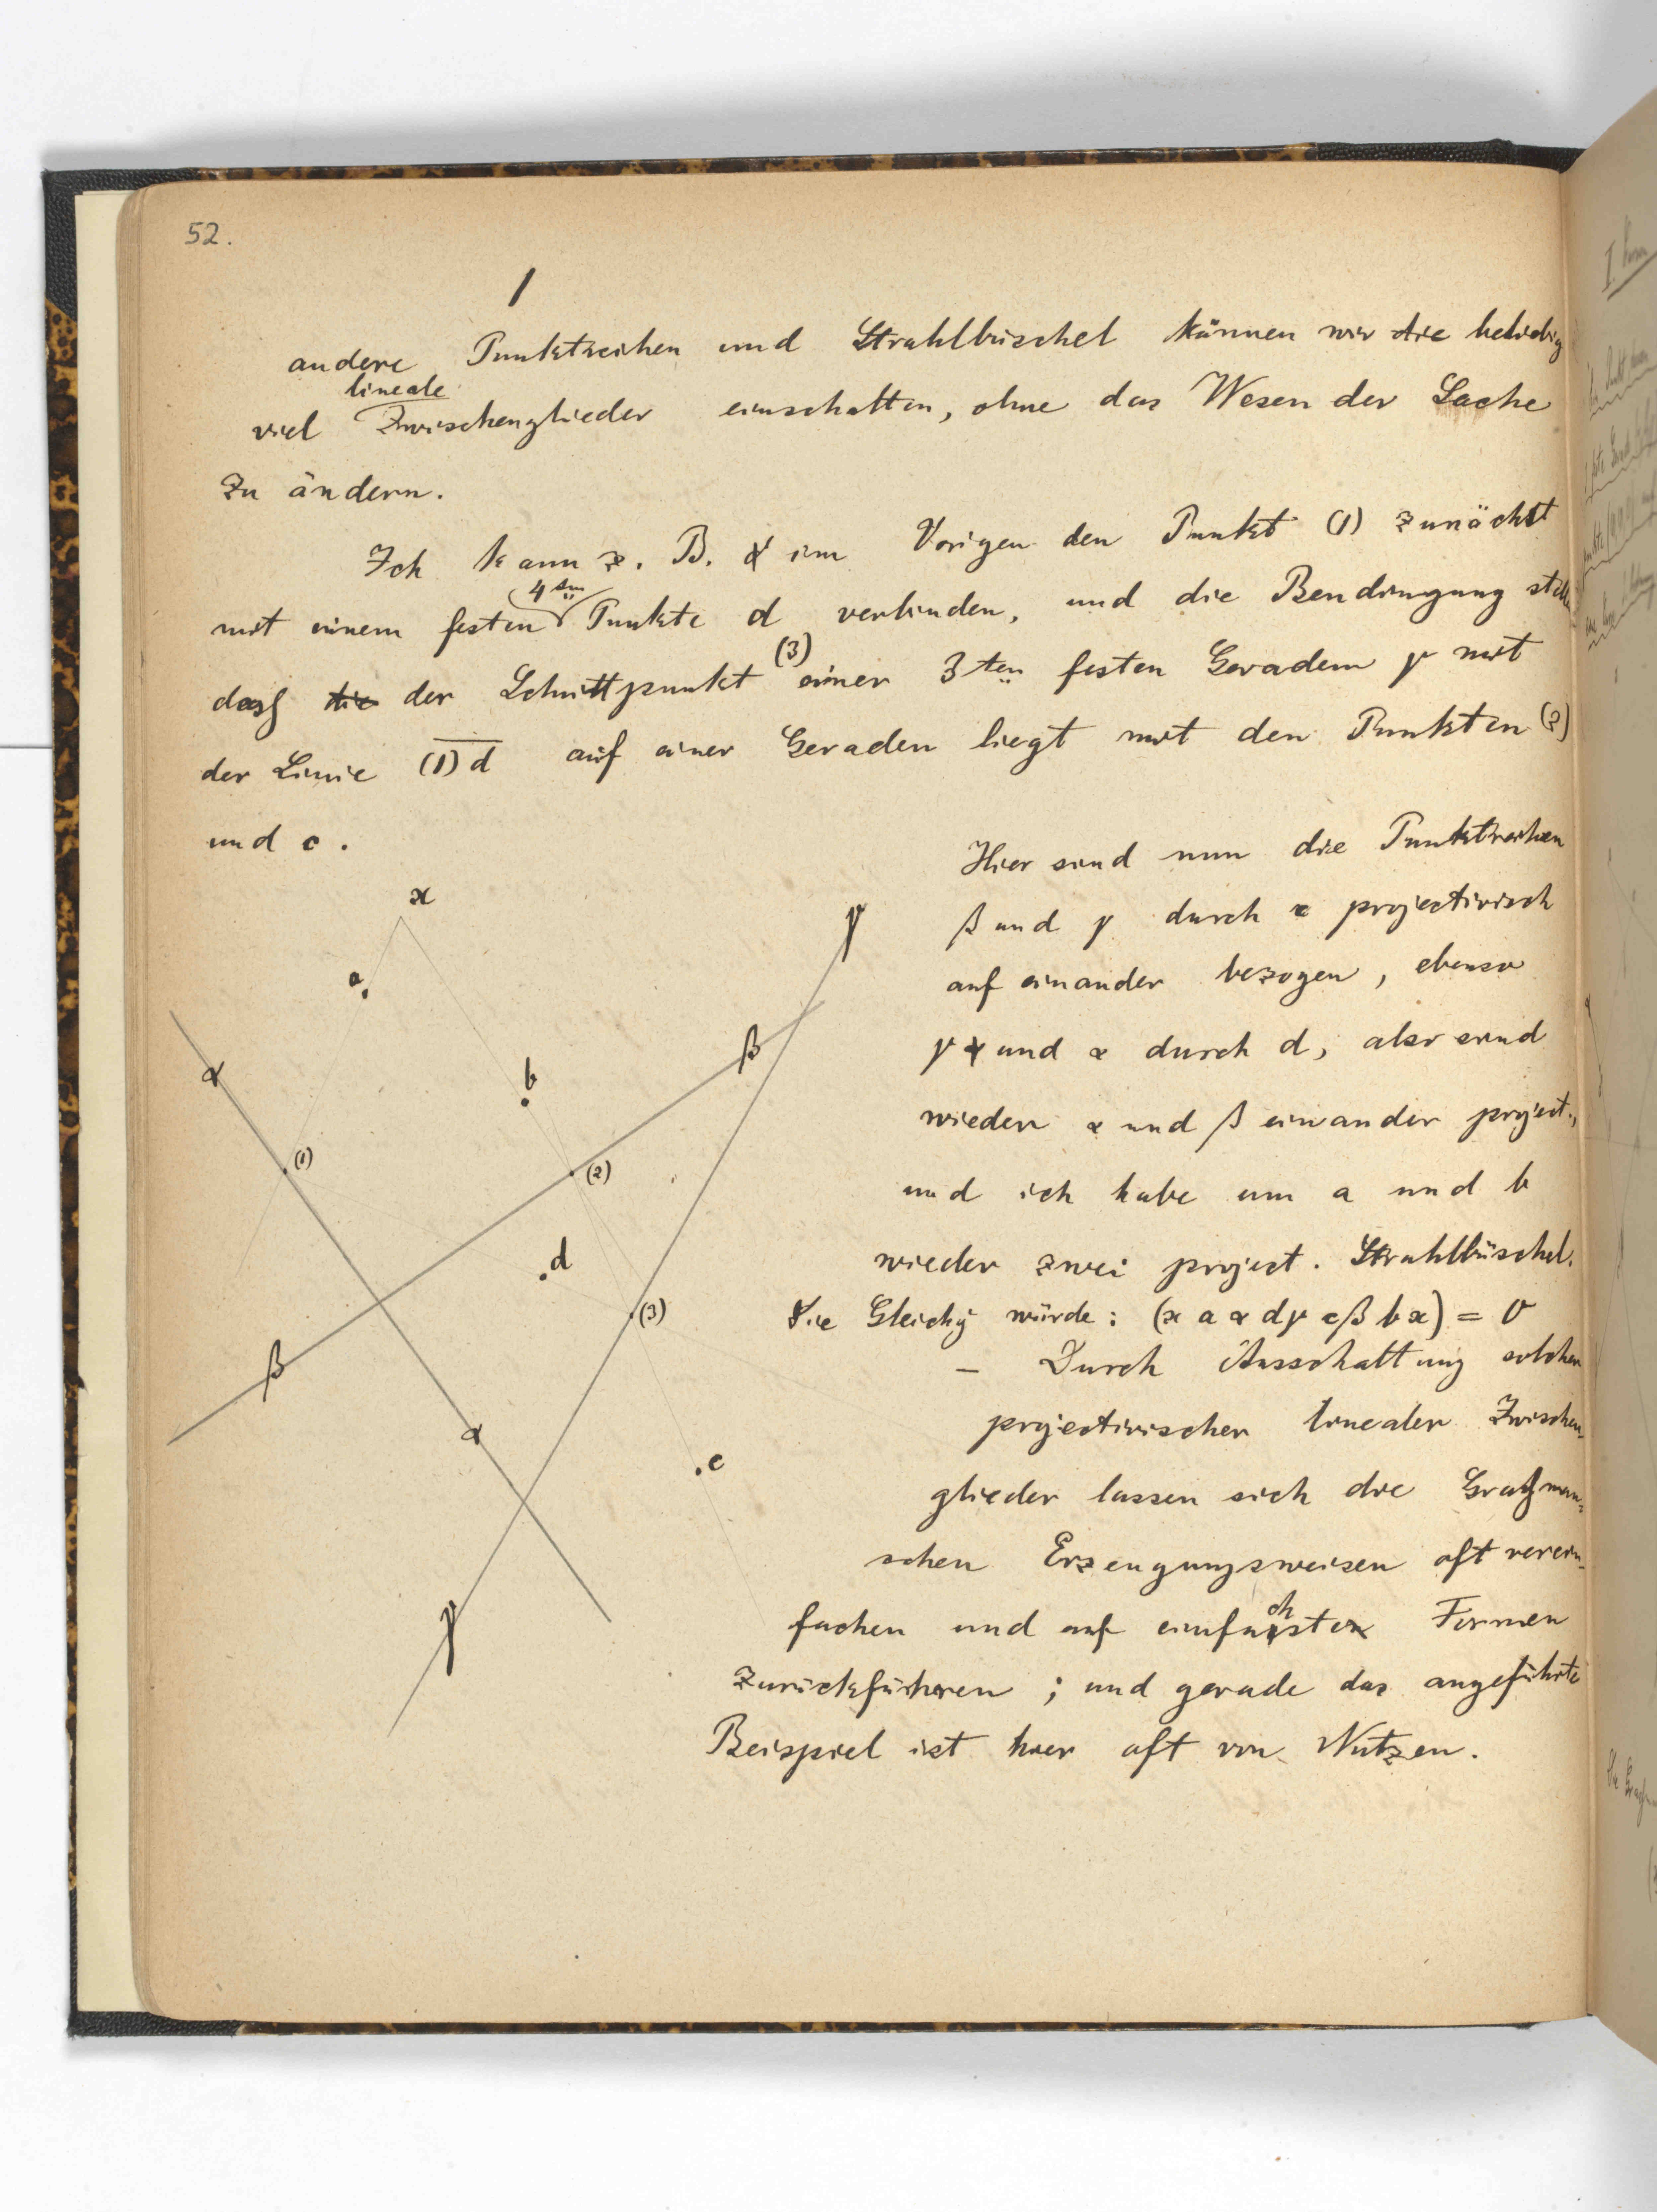 52.
andere Punktreihen und Strahlbüschel können wir die beliebig
lineale
viel Zwischenglieder einschalten, ohne das Wesen der Sache
zu ändern.
Ich kann z. B. im Vorigen den Punkt (1) zunächst
4ten
mit einem festen Punkte d verbinden, und die Bendingung stellen
(3)
dass die der Schnittpunkt einer 3ten festen Geradem γ mit
der Linie (1)d auf einer Geraden liegt mit den Punkten (2)
und c.
Hier sind nun die Punktreihen
β und γ durch c projectivisch
auf einander bezogen, ebenso
γ und α durch d, also sind
wieder α und β einander project.,
und ich habe um a und b
wieder zwei project. Strahlbüschel.
Die Gleichg würde: (x a α d γ c β b x) = 0
– Durch Ausschaltung solcher
projectivischer linealer Zwischen-
glieder lassen sich die Graßman-
schen Erzeugungsweisen oft verein-
fachen und auf einfachste Formen
zurückführen; und gerade das angeführte
Beispiel ist hier oft von Nutzen.
x
a
γ
β
α
b
(1)
(2)
d
(3)
β
α
c
γ